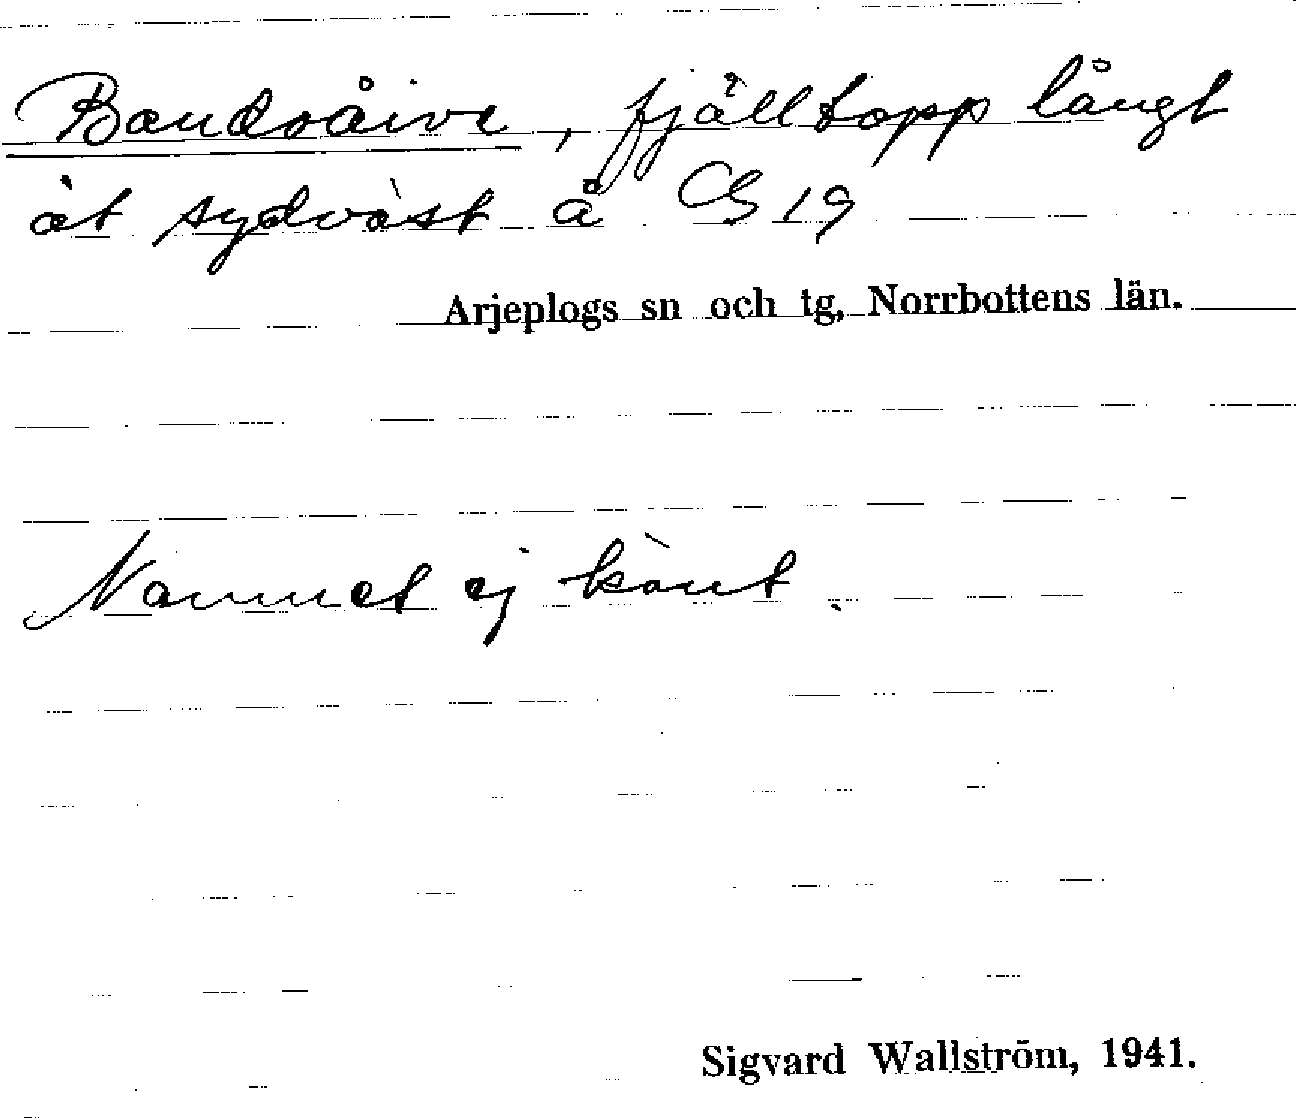 Baudoåive, fjälltopp långt
åt sydväst å GS 19
Arjeplogs sn och tg, Norrbottens län.
Namnet ej känt.
Sigvard Wallström, 1941.